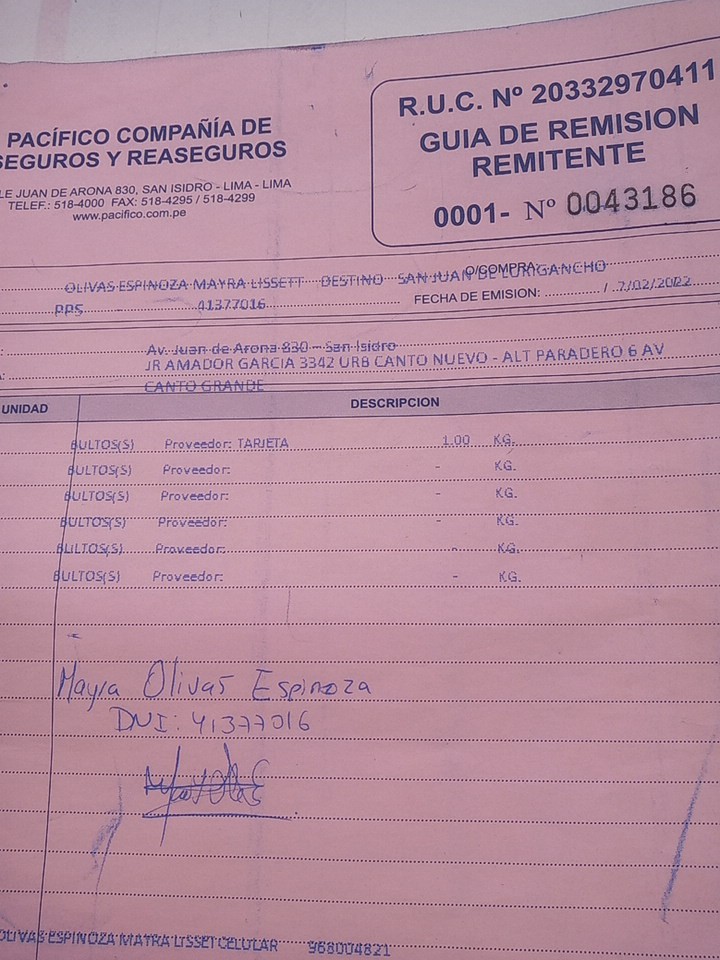 PACÍFICO COMPAÑÍA DE
SEGUROS Y REASEGUROS
LE JUAN DE ARONA 830, SAN ISIDRO - LIMA - LIMA
TELEF.: 518-4000 FAX: 518-4295 / 518-4299
www.pacifico.com.pe
R.U.C. Nº 20332970411
GUIA DE REMISION
REMITENTE
0001- Nº 0043186
O/COMPRA:
OLIVAS ESPINOZA MAYRA LISSETT DESTINO SAN JUAN DE LURIGANCHO
PPS - 41377016 FECHA DE EMISION: / 7/02/2022
Av. Juan de Arona 830 - San Isidro
JR AMADOR GARCIA 3342 URB CANTO NUEVO - ALT PARADERO 6 AV
CANTO GRANDE
UNIDAD DESCRIPCION
BULTOS(S) Proveedor: TARJETA 1.00 KG.
BULTOS(S) Proveedor: - KG.
BULTOS(S) Proveedor: - KG.
BULTOS(S) Proveedor: - KG.
BULTOS(S) Proveedor: - KG.
BULTOS(S) Proveedor: - KG.
Mayra Olivas Espinoza
DNI: 41377016
OLIVAS ESPINOZA MAYRA LISSET CELULAR 968004821